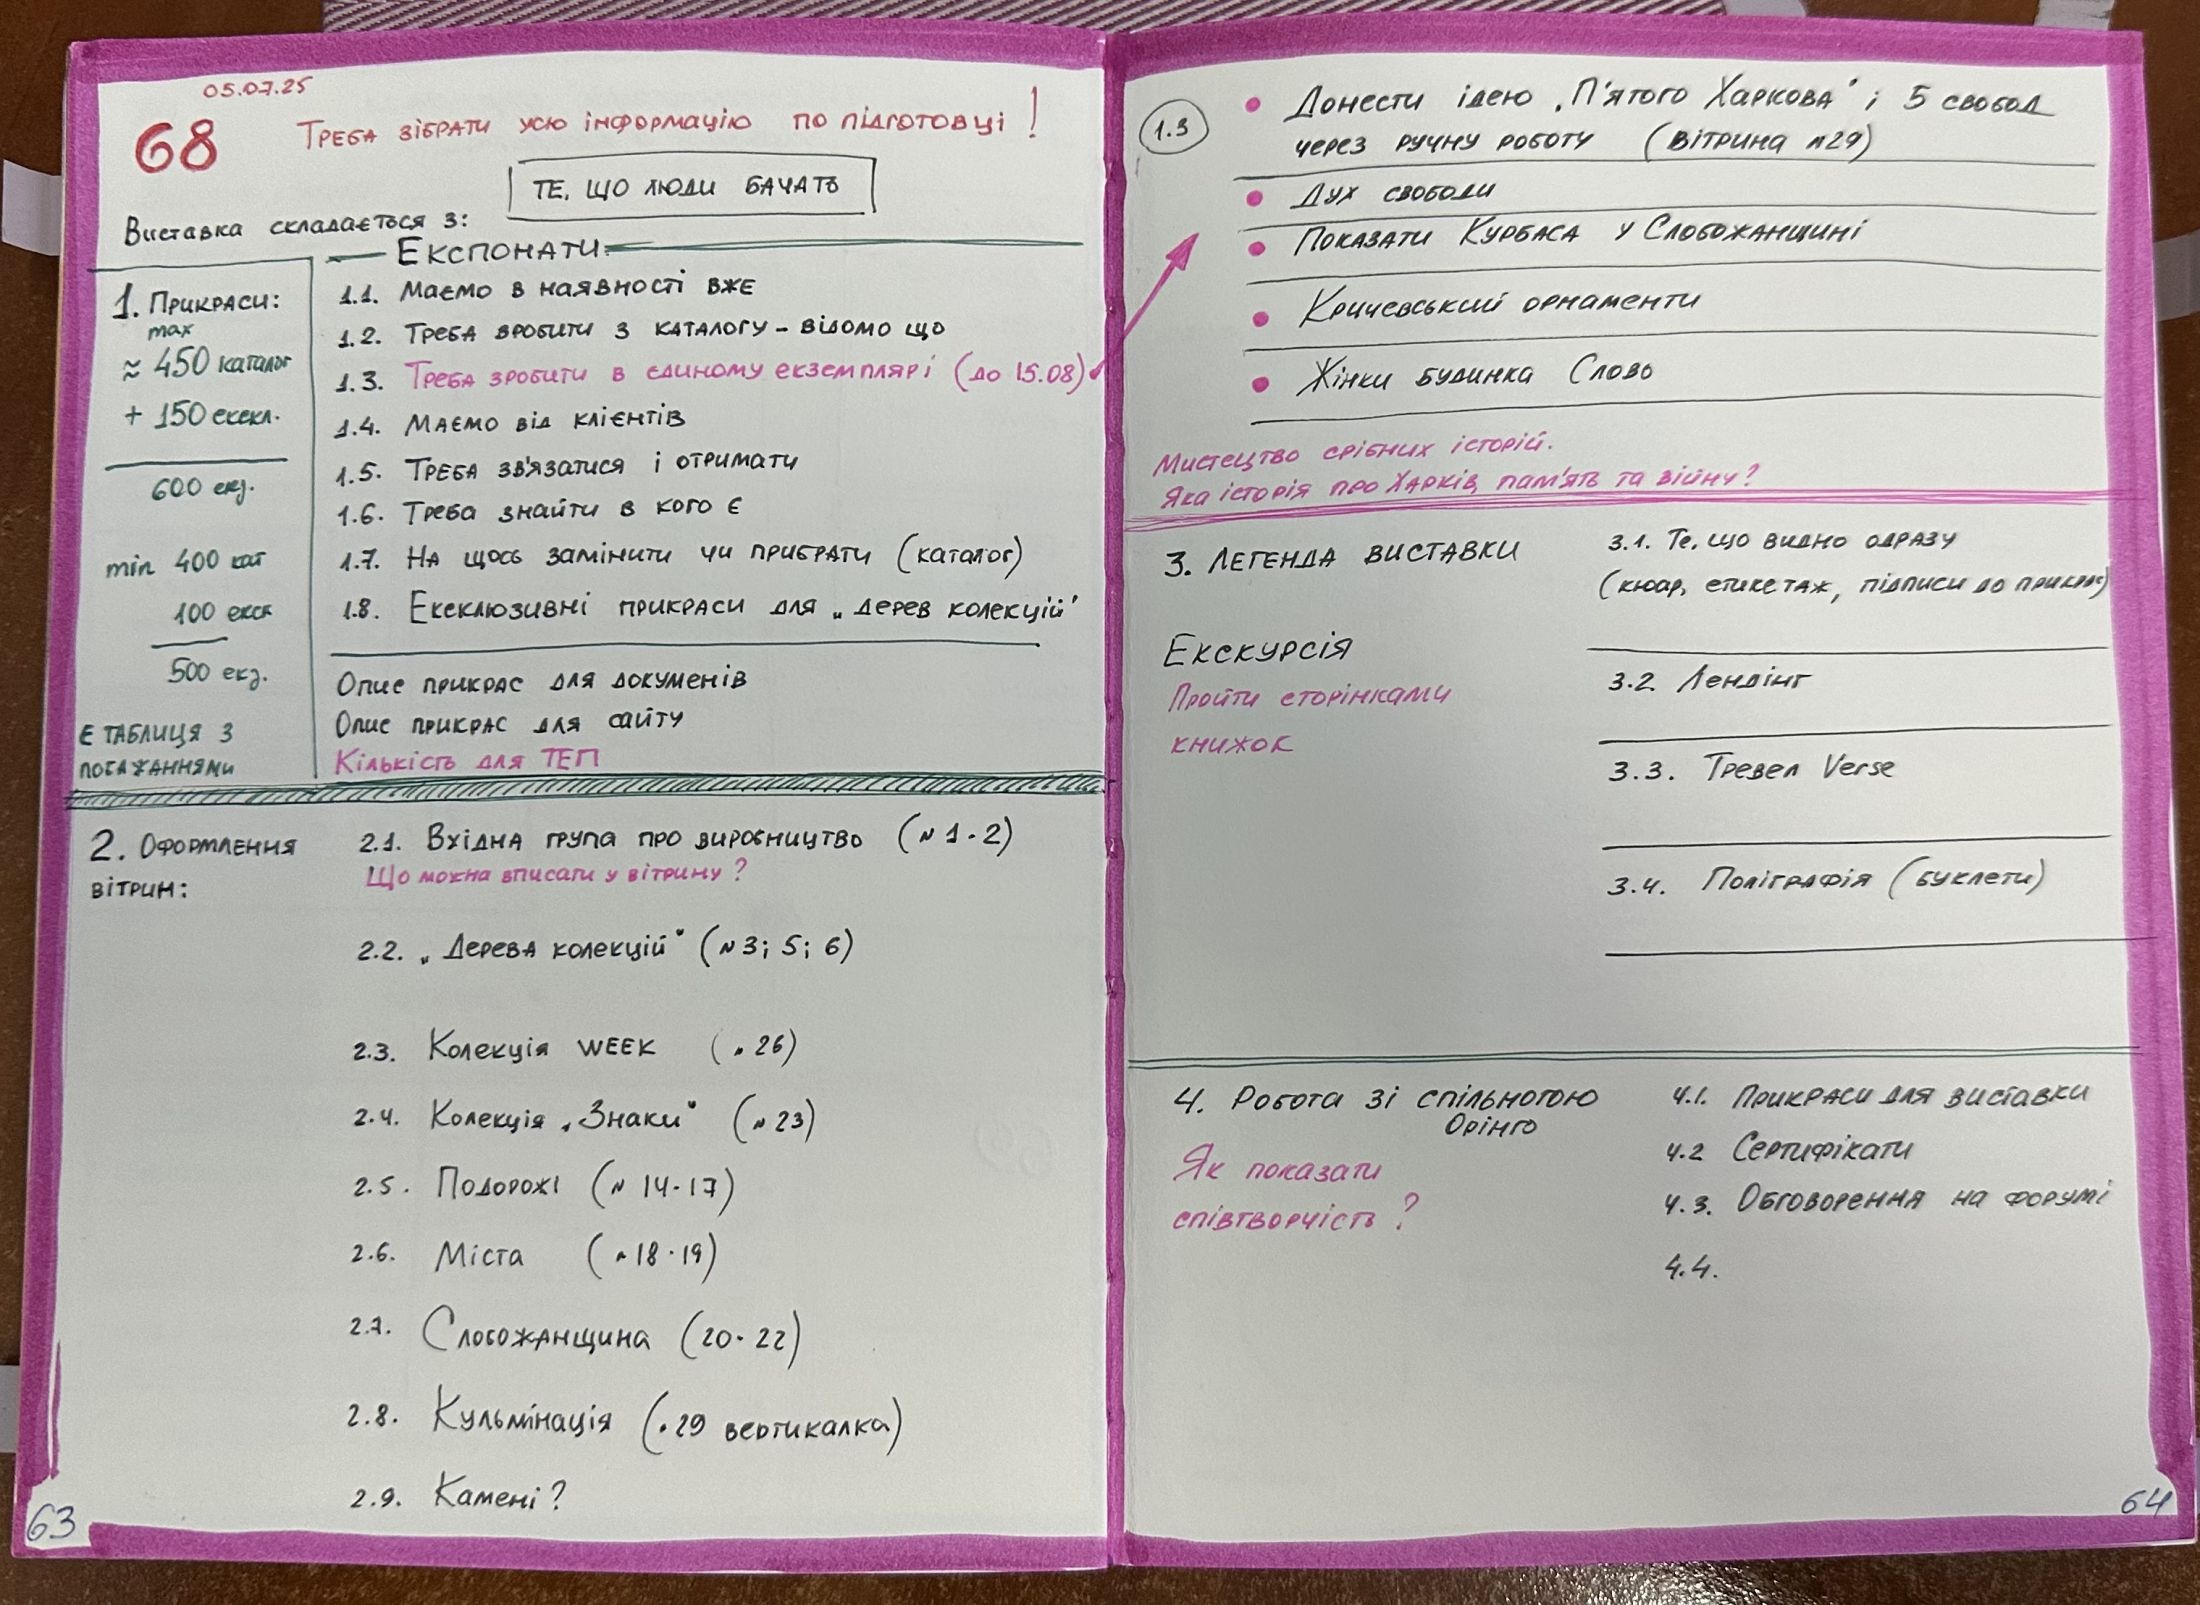 05.07.25
68
Треба зібрати усю інформацію по підготовці!
Те, що люди бачать
Виставка складається з:
Експонати
1. Прикраси:
max
≈ 450 каталог
+ 150 ексkл.
600 екз.
min 400 кат
100 екск
500 екз.
Є таблиця з
побажаннями
1.1. Маємо в наявності вже
1.2. Треба зробити з каталогу - відомо що
1.3. Треба зробити в єдиному екземплярі (до 15.08)
1.4. Маємо від клієнтів
1.5. Треба зв'язатися і отримати
1.6. Треба знайти в кого є
1.7. На щось замінити чи прибрати (каталог)
1.8. Ексклюзивні прикраси для „дерев колекцій"
Опис прикрас для документів
Опис прикрас для сайту
Кількість для ТЕП
2. Оформлення
вітрин:
2.1. Вхідна група про виробництво (N 1-2)
Що можна вписати у вітрину?
2.2. „Дерева колекцій" (N 3; 5; 6)
2.3. Колекція WEEK (N 26)
2.4. Колекція „Знаки" (N 23)
2.5. Подорожі (N 14-17)
2.6. Міста (N 18-19)
2.7. Слобожанщина (20-22)
2.8. Кульмінація (N 29 вертикалка)
2.9. Камені?
63
1.3
• Донести ідею „П'ятого Харкова" і 5 свобод
через ручну роботу (вітрина N29)
• Дух свободи
• Показати Курбаса у Слобожанщині
• Кричевський орнаменти
• Жінки будинка Слово
Мистецтво срібних історій.
Яка історія про Харків, пам'ять та війну?
3. Легенда виставки
Екскурсія
Пройти сторінками
книжок
3.1. Те, що видно одразу
(кюар, етикетаж, підписи до прикрас)
3.2. Лендінг
3.3. Тревел Verse
3.4. Поліграфія (буклети)
4. Робота зі спільнотою
Орінго
Як показати
співтворчість?
4.1. Прикраси для виставки
4.2 Сертифікати
4.3. Обговорення на форумі
4.4.
64